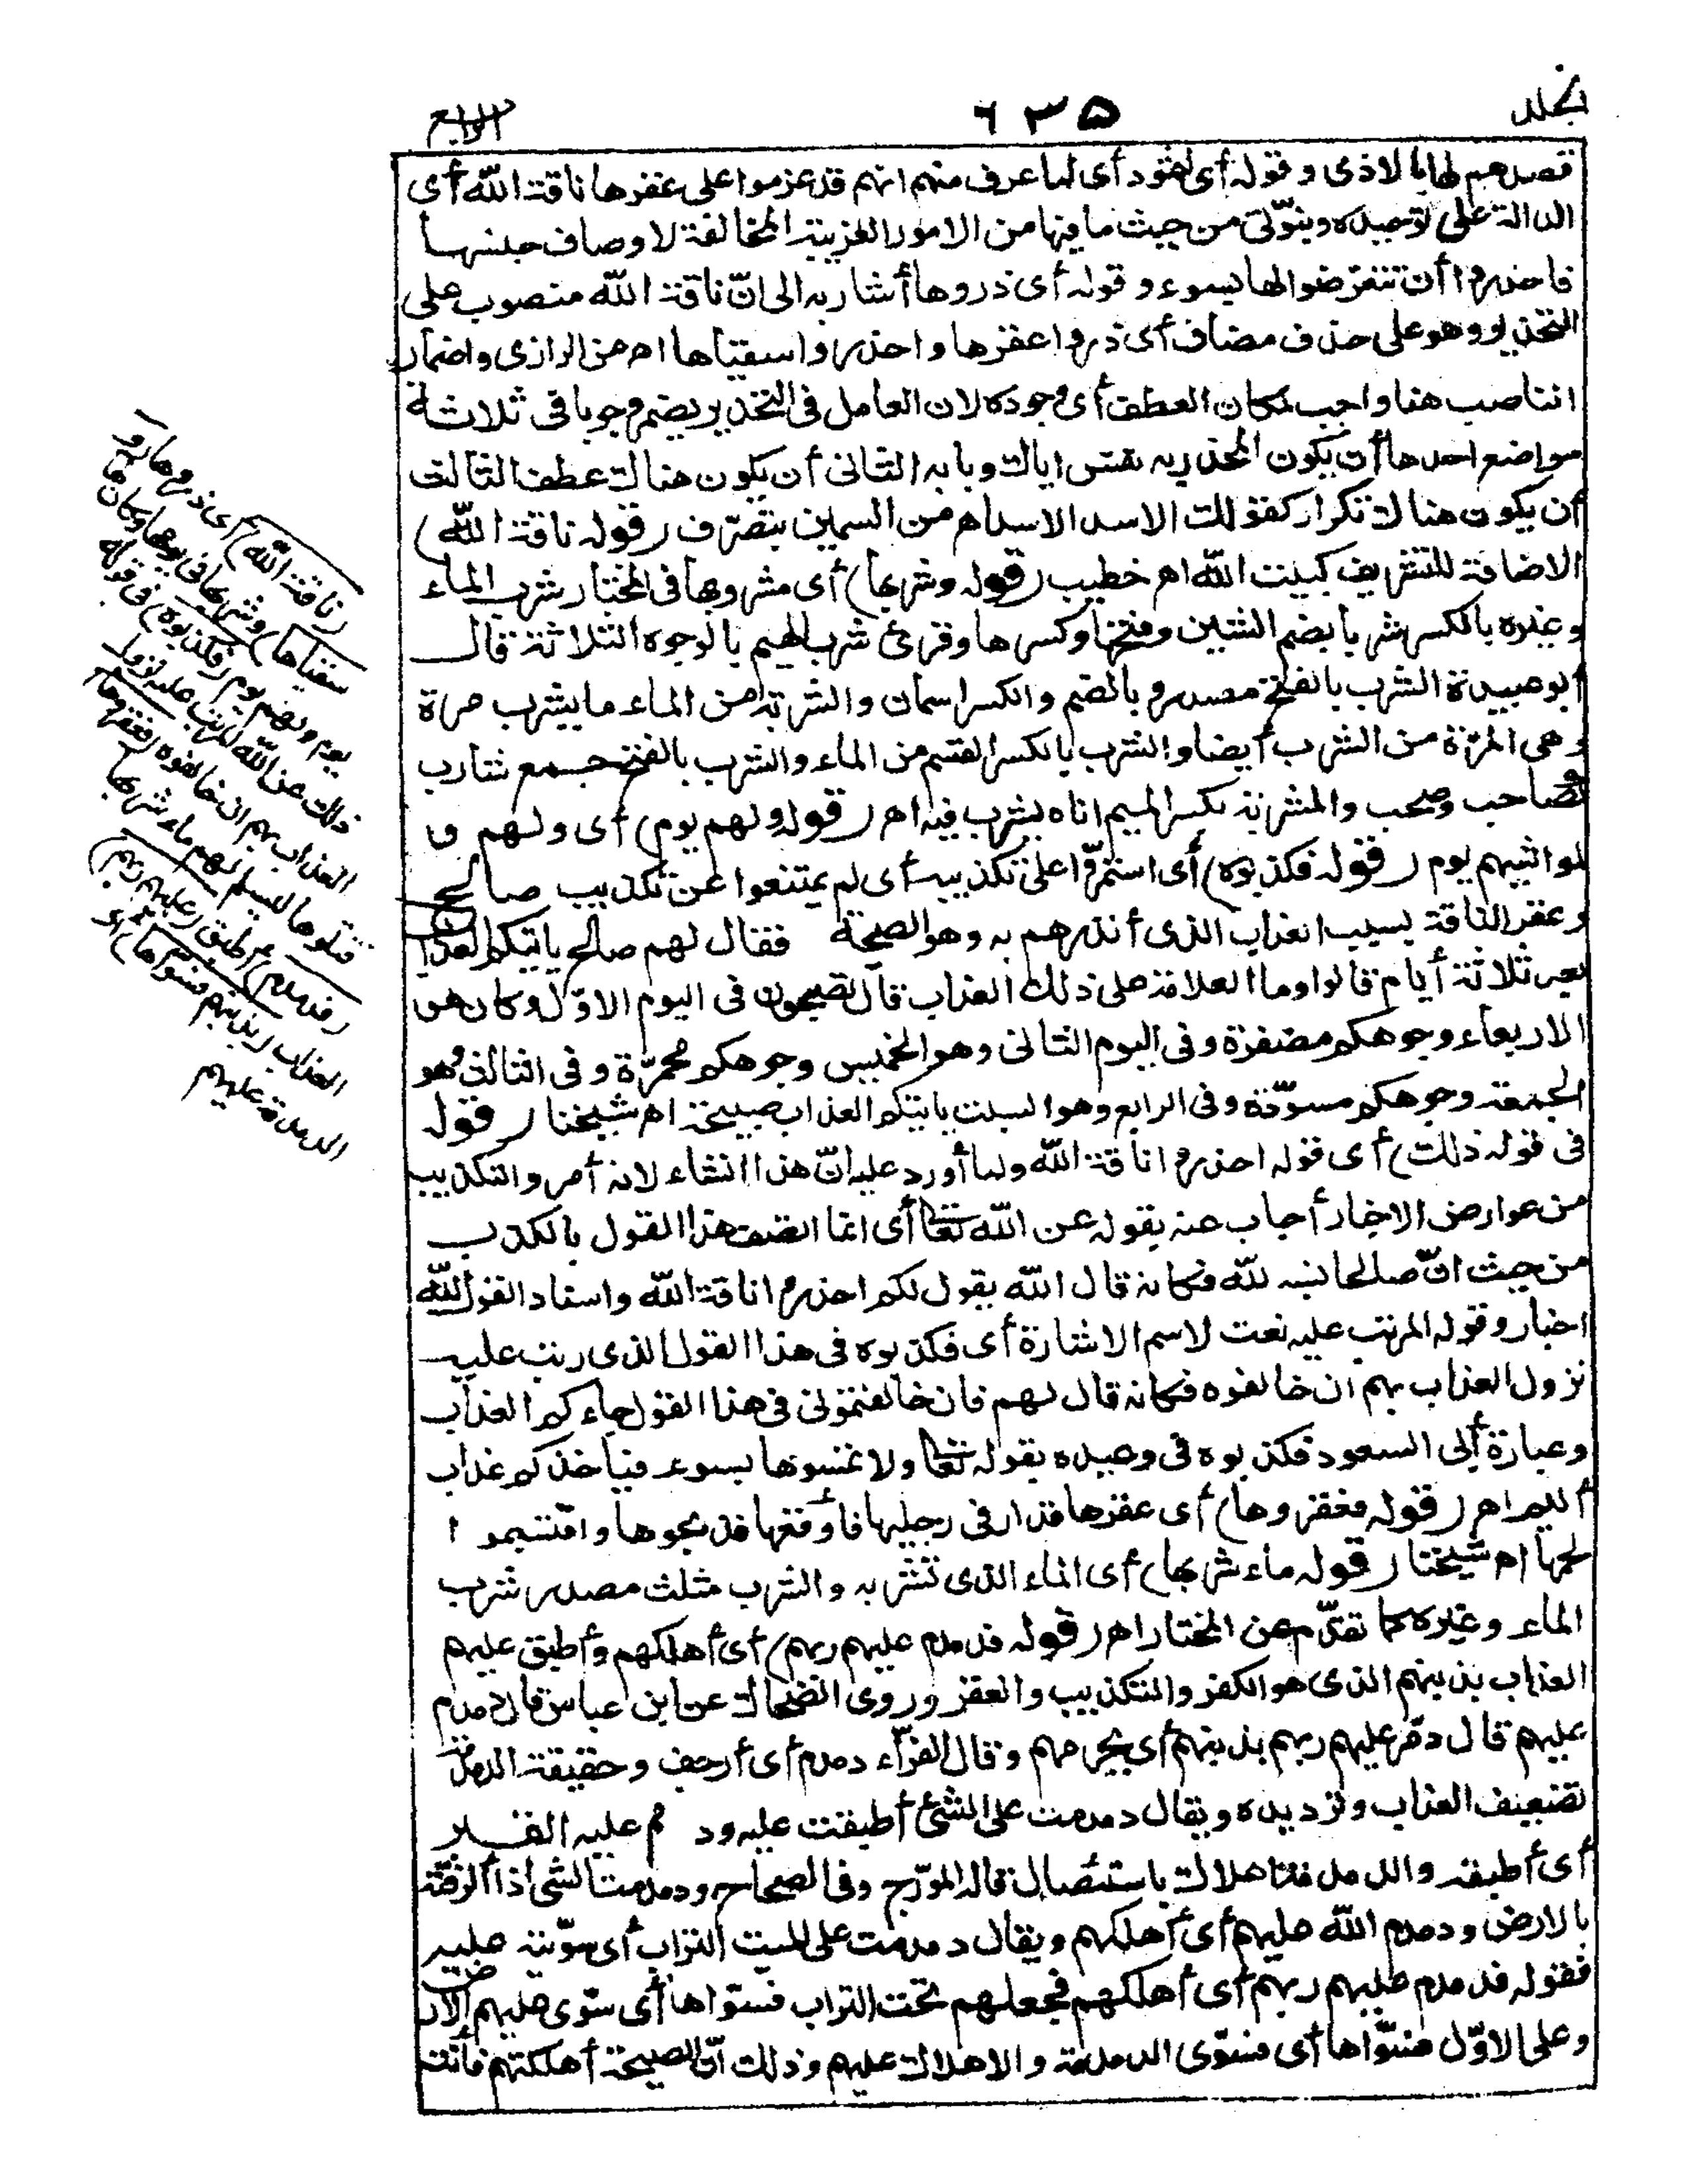 المجلد
٦٣٥
الرابع
قصدهم لها بالاذى وقوله أى لثمود أى لما عرف منهم انهم قد عزموا على عقرها ناقة الله أى
الدالة على توحيده ونبوّتى من حيث ما فيها من الامور الغريبة المخالفة لاوصاف جنسها
فاحذروا أن تتعرّضوا لها بسوء وقوله أى ذروها أشار به الى انّ ناقة الله منصوب على
التحذير وهو على حذف مضاف أى ذروا عقرها واحذروا سقياها اه من الرازى واضمار
الناصب هنا واجب لمكان العطف أى وجوده لان العامل فى التحذير يضمر وجوبا فى ثلاثة
مواضع احدها أن يكون المحذر به نفس اياك وبابه الثانى أن يكون هناك عطف الثالث
أن يكون هناك تكرار كقولك الاسد الاسد اه من السمين بتصرّف (قوله ناقة الله)
الاضافة للتشريف كبيت الله اه خطيب (قوله وشربها) أى مشروبها فى المختار شرب الماء
وغيره بالكسر شربا بضم الشين وفتحها وكسرها وقرئ شرب الهيم بالوجوه الثلاثة قال
أبو عبيدة الشرب بالفتح مصدر وبالضم والكسر اسمان والشربة من الماء ما يشرب مرة
وهى المرّة من الشرب أيضا والشرب بالكسر القسم من الماء والشرب بالفتح جمع شارب
كصاحب وصحب والمشربة بكسر الميم اناء يشرب فيه اه (قوله ولهم يوم) أى ولهم و
لمواشيهم يوم (قوله فكذبوه) أى استمرّوا على تكذيبه أى لم يمتنعوا عن تكذيب صالح
وعقر الناقة بسبب العذاب الذى أنذرهم به وهو الصيحة فقال لهم صالح يأتيكم العذاب
بعد ثلاثة أيام قالوا وما العلامة على ذلك العذاب قال تصبحون فى اليوم الاوّل وكان هو
الاربعاء وجوهكم مصفرة وفى اليوم الثانى وهو الخميس وجوهكم محمرّة وفى الثالث وهو
الجمعة وجوهكم مسودّة وفى الرابع وهو السبت يأتيكم العذاب صبيحته اه شيخنا (قوله
فى قوله ذلك) أى قوله احذروا ناقة الله ولما أورد عليه انّ هذا انشاء لانه أمر والتكذيب
من عوارض الاخبار أجاب عنه بقوله عن الله تعالى أى انما اتصف هذا القول بالكذب
من حيث انّ صالحا نسبه لله فكانه قال الله يقول لكم احذروا ناقة الله واسناد القول لله
اخبار وقوله المرتب عليه نعت لاسم الاشارة أى فكذبوه فى هذا القول الذى رتب عليه
نزول العذاب بهم ان خالفوه فكانه قال لهم فان خالفتمونى فى هذا القول جاءكم العذاب
وعبارة أبى السعود فكذبوه فى وعيده بقوله تعالى ولا تمسوها بسوء فيأخذكم عذاب
أليم اه (قوله فعقروها) أى عقرها قدار فى رجليها فأوقعها فذبحوها واقتسموا
لحمها اه شيخنا (قوله ماء شربها) أى الماء الذى تشربه والشرب مثلث مصدر شرب
الماء وغيره كما تقدّم عن المختار اه (قوله فدمدم عليهم ربهم) أى أهلكهم وأطبق عليهم
العذاب بذنبهم الذى هو الكفر والتكذيب والعقر وروى الضحاك عن ابن عباس قال دمدم
عليهم قال دمّر عليهم ربهم بذنبهم أى بجرمهم وقال الفرّاء دمدم أى أرجف وحقيقة الدمدمة
تضعيف العذاب وترديده ويقال دمدمت على الشئ أطبقت عليه ود م عليه القبر
أى أطبقه والدمدمة اهلاك باستئصال قاله المؤرّج وفى الصحاح ودمدمت الشئ اذا ألزقته
بالارض ودمدم الله عليهم أى أهلكهم ويقال دمدمت على الميت التراب أى سوّيته عليه
فقوله فدمدم عليهم ربهم أى أهلكهم فجعلهم تحت التراب فسوّاها أى سوّى عليهم الارض
وعلى الاوّل فسوّاها أى فسوّى الدمدمة والاهلاك عليهم وذلك أنّ الصيحة أهلكتهم فأتت
(ناقة الله) أى ذروها (و
سقياها) وشربها فى يومها وكان لها
يوم ولهم يوم (فكذبوه) فى قوله
ذلك عن الله المرتب عليه نزول
العذاب بهم ان خالفوه (فعقروها)
قتلوها ليسلم لهم ماء شربها
(فدمدم) أطبق (عليهم ربهم)
العذاب (بذنبهم فسواها) أى
الدمدمة عليهم